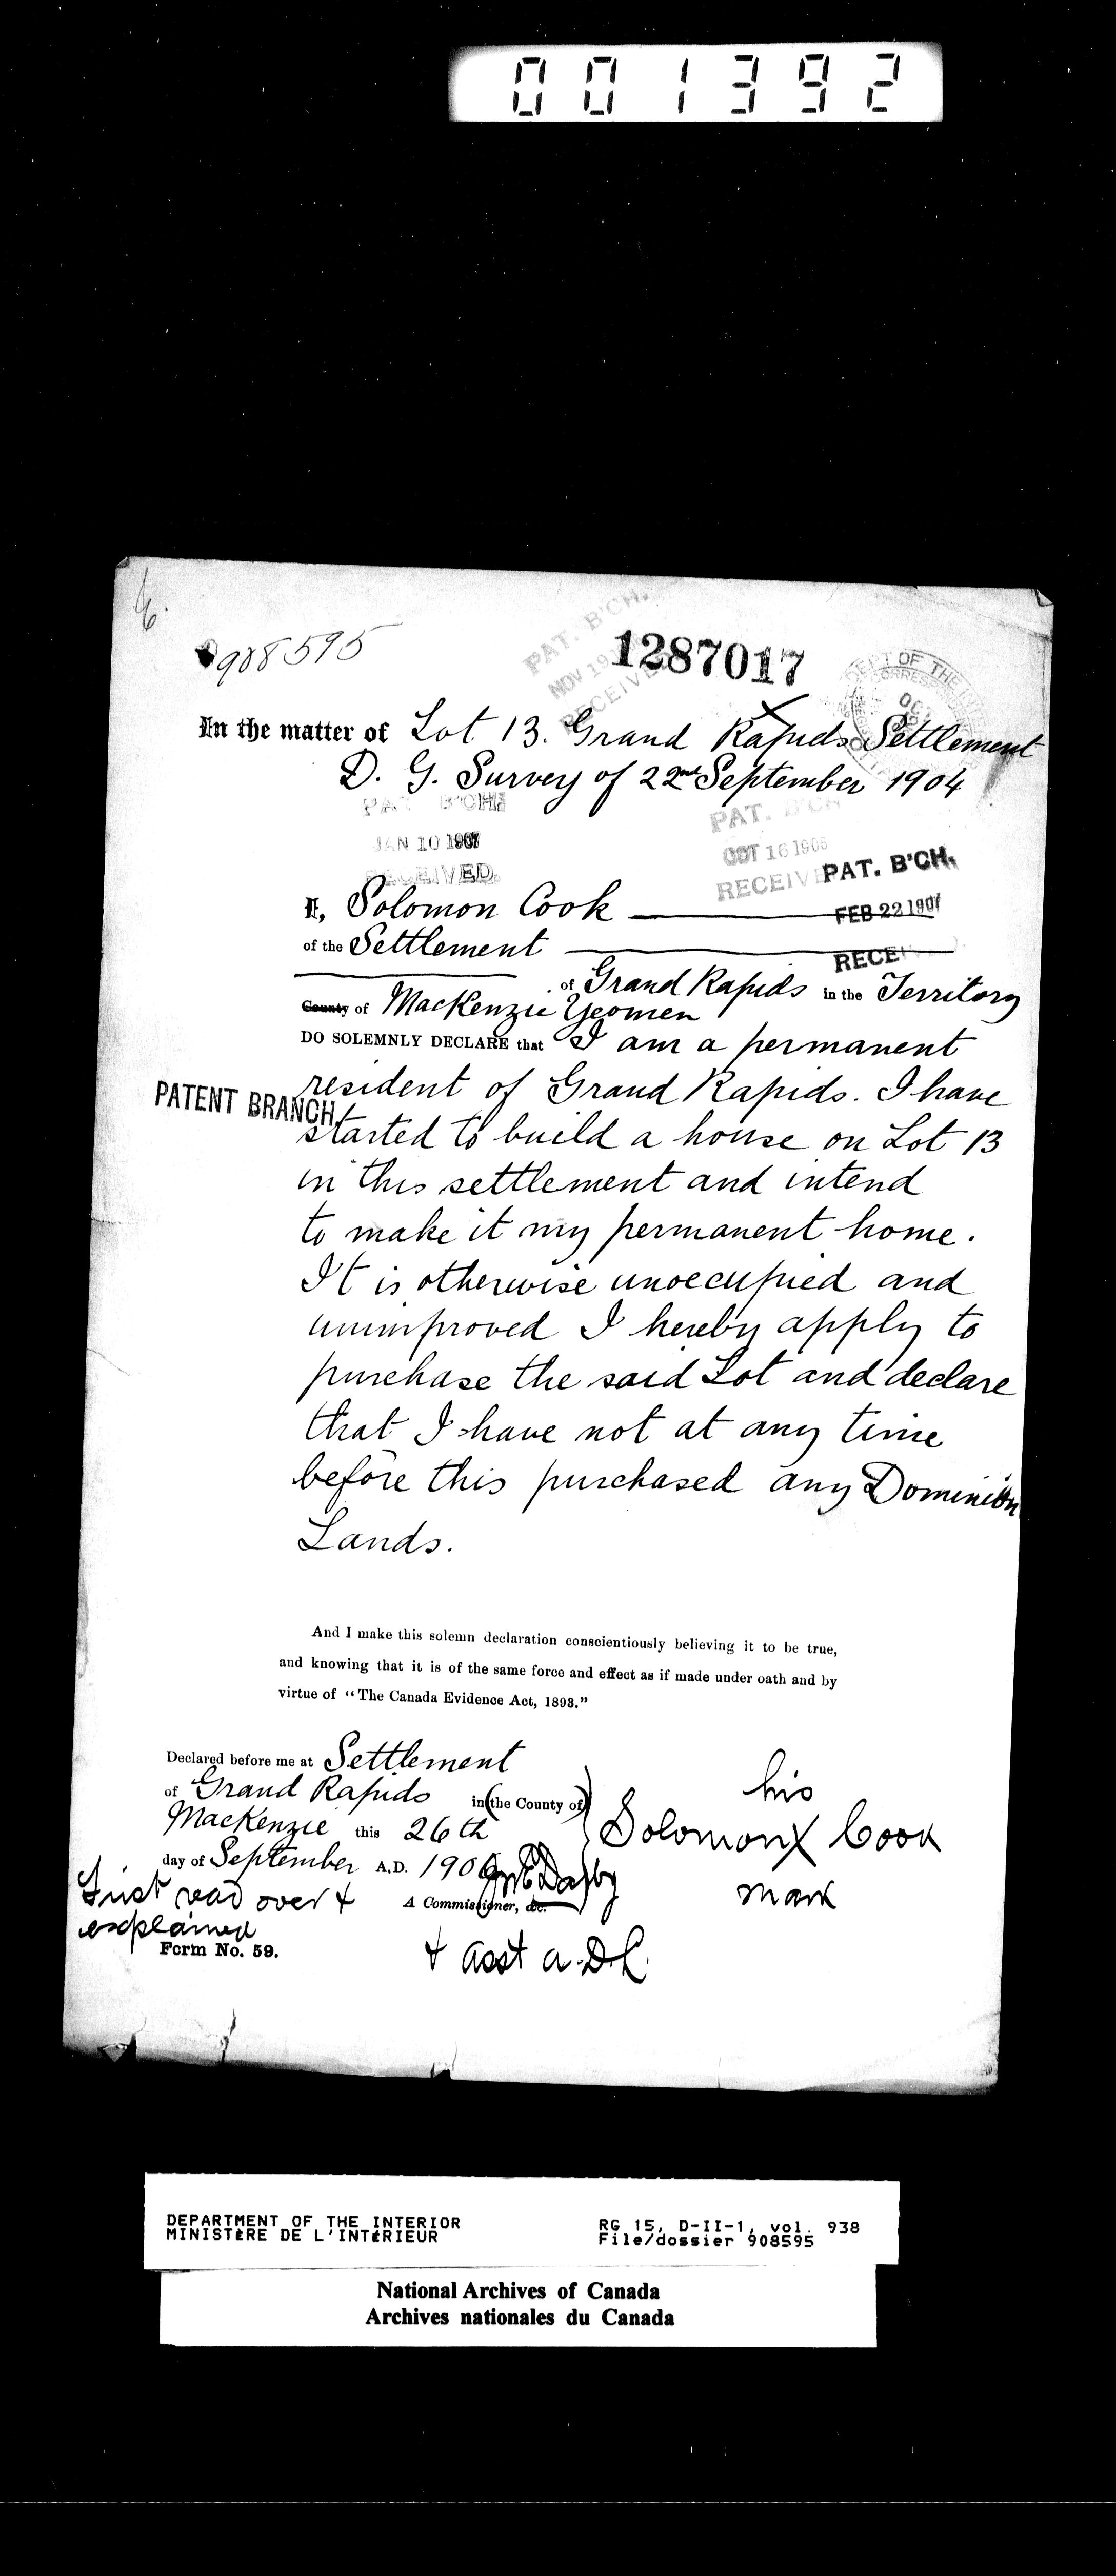 001392
908595
PAT. B'CH.
NOV 19
RECEIVE
1287017
DEPT OF THE
In the matter of Lot 13. Grand Rapids Settlement
D. G. Survey of 22nd September 1904
PAT B'CH
JAN 10 1907
RECEIVED.
PAT. B'CH
OCT 16 1906
RECEIV
PAT. B'CH.
FEB 22 1907
RECE
I, Solomon Cook
of the Settlement
of Grand Rapids in the Territory
County of MacKenzie Yeomen
DO SOLEMNLY DECLARE that I am a permanent
resident of Grand Rapids. I have
PATENT BRANCH
started to build a house on Lot 13
in this settlement and intend
to make it my permanent home.
It is otherwise unoccupied and
unimproved I hereby apply to
purchase the said Lot and declare
that I have not at any time
before this purchased any Dominion
Lands.
And I make this solemn declaration conscientiously believing it to be true,
and knowing that it is of the same force and effect as if made under oath and by
virtue of "The Canada Evidence Act, 1893."
Declared before me at Settlement
of Grand Rapids in (the County of)
MacKenzie this 26th
day of September A.D. 1906
his
Solomon X Cook
mark
First read over &
explained
A Commissioner, &c.
Form No. 59.
& Asst a.D.L.
DEPARTMENT OF THE INTERIOR
MINISTÈRE DE L'INTÉRIEUR
RG 15, D-II-1, vol. 938
File/dossier 908595
National Archives of Canada
Archives nationales du Canada